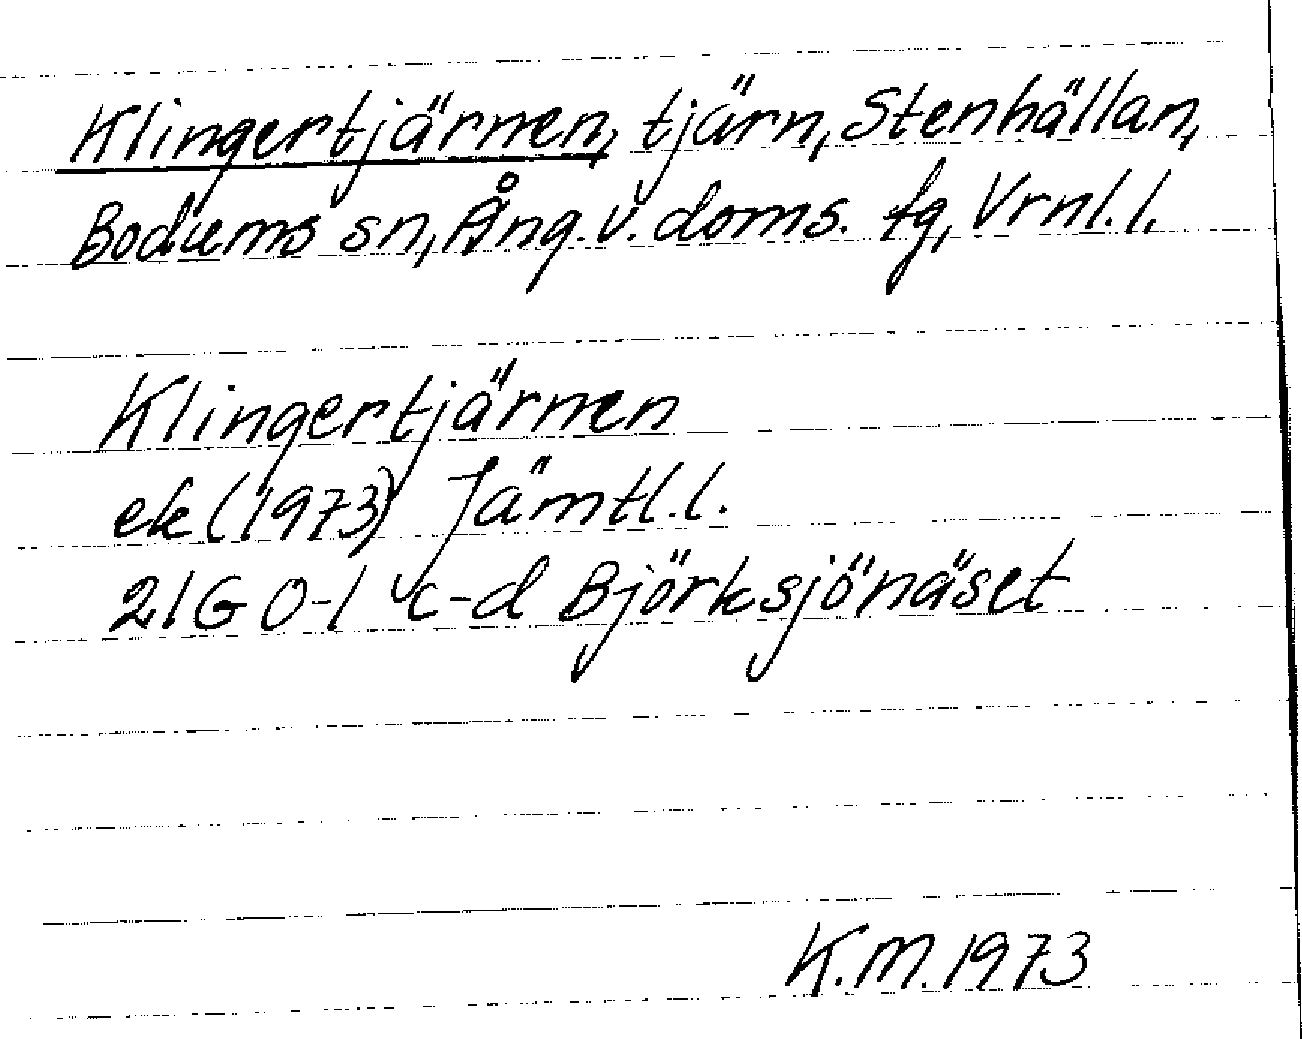 Klingertjärnen, tjärn, Stenhällan,
Bodums sn, Ång. v. doms. tg, Vrnl. l.
Klingertjärnen
ek (1973) Jämtl. l.
21G 0-1 c-d Björksjönäset
K.M. 1973